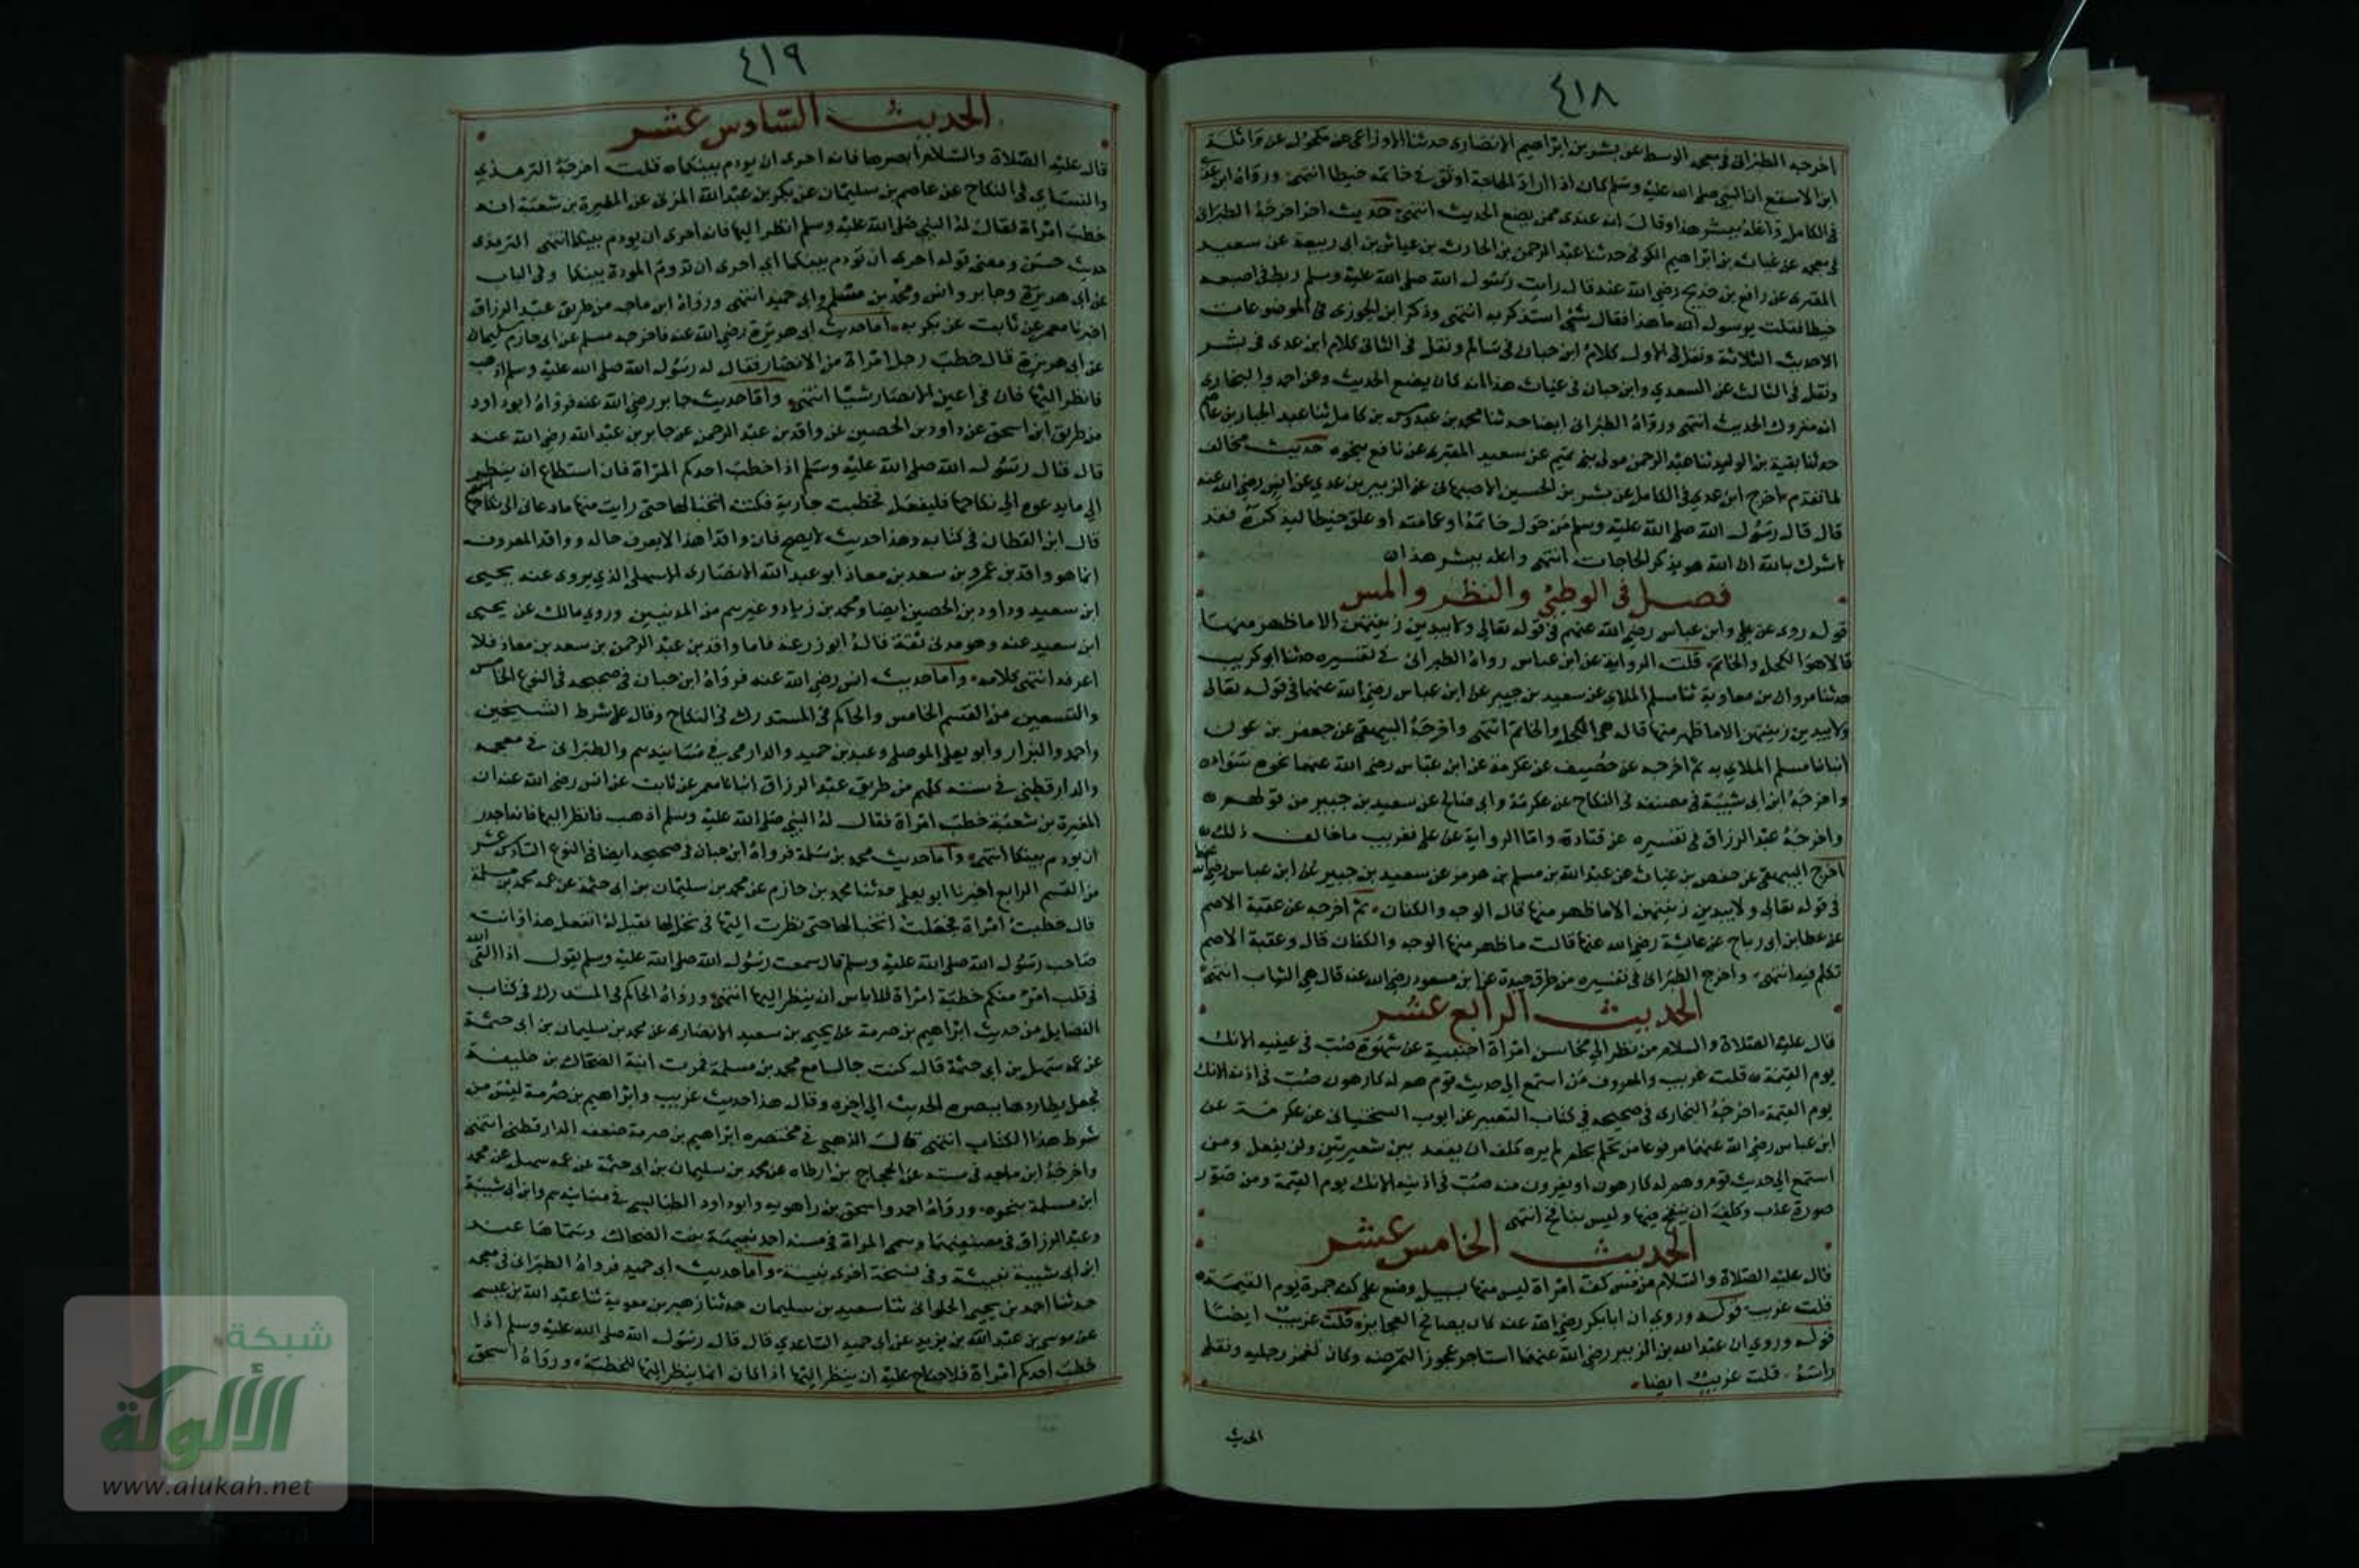 ٤١٨
اخرجه الطبرانى فى معجمه الوسط عن بشر بن ابراهيم الانصارى حدثنا الاوزاعى عن مكحول عن واثلة
ابن الاسقع ان النبى صلى الله عليه وسلم كان اذا اراد الحاجة اوثق فى خاتمه خيطا انتهى ورواه ابن عدى
فى الكامل واعله ببشر هذا وقال انه عندى ممن يضع الحديث انتهى حديث اخر اخرجه الطبرانى
فى معجمه عن غياث بن ابراهيم الكوفى حدثنا عبد الرحمن بن الحارث بن عياش بن ابى ربيعة عن سعيد
المقبرى عن رافع بن خديج رضى الله عنه قال رايت رسول الله صلى الله عليه وسلم ربط فى اصبعه
خيطا فقلت يرسول الله ما هذا فقال شئ استذكر به انتهى وذكر ابن الجوزى فى الموضوعات
الاحديث الثلاثة ونقل فى الاول كلام ابن حبان فى سالم ونقل فى الثانى كلام ابن عدى فى بشر
ونقل فى الثالث عن السعدي وابن حبان فى غياث هذا انه كان يضع الحديث وعن احمد والبخارى
انه متروك الحديث انتهى ورواه الطبرانى ايضا حدثنا محمد بن عبدوس بن كامل ثنا عبد الجبار بن عاصم
حدثنا بقية بن الوليد ثنا عبد الرحمن مولى بنى تميم عن سعيد المقبرى عن نافع بنحوه حديث مخالف
لما تقدم اخرج ابن عدى فى الكامل عن بشر بن الحسين الاصبهانى عن الزبير بن عدي عن انس رضى الله عنه
قال قال رسول الله صلى الله عليه وسلم من حول خاتمه او عمامته او علق خيطا ليذكره فقد
اشرك بالله ان الله هو يذكر الحاجات انتهى واعله ببشر هذا
فصل فى الوطئ والنظر والمس
قوله روى عن على وابن عباس رضى الله عنهم فى قوله تعالى ولا يبدين زينتهن الا ما ظهر منها
قالا هو الكحل والخاتم قلت الرواية عن ابن عباس رواه الطبرانى فى تفسيره حدثنا ابو كريب
حدثنا مروان بن معاوية ثنا مسلم الملاى عن سعيد بن جبير عن ابن عباس رضى الله عنهما فى قوله تعالى
ولا يبدين زينتهن الا ما ظهر منها قال هى الكحل والخاتم انتهى واخرجه البيهقى عن جعفر بن عون
انبانا مسلم الملاي به ثم اخرجه عن خصيف عن عكرمة عن ابن عباس رضى الله عنهما نحوه سواء
واخرجه ابن ابى شيبة فى مصنفه فى النكاح عن عكرمة وابى صالح عن سعيد بن جبير من قولهم
واخرجه عبد الرزاق فى تفسيره عن قتادة واما الرواية عن على فغريب ما خالف ذلك
اخرج البيهقى عن حفص بن غياث عن عبد الله بن مسلم بن هرمز عن سعيد بن جبير عن ابن عباس رضى الله عنهما
فى قوله تعالى ولا يبدين زينتهن الا ما ظهر منها قال الوجه والكفان ثم اخرجه عن عقبة الاصم
عن عطا بن ابى رباح عن عائشة رضى الله عنها قالت ما ظهر منها الوجه والكفان قال وعقبة الاصم
تكلم فيه انتهى واخرج الطبرانى فى تفسيره من طرق جيدة عن ابن مسعود رضى الله عنه قال هى الثياب انتهى
الحديث الرابع عشر
قال عليه الصلاة والسلام من نظر الى محاسن امراة اجنبية عن شهوة صب فى عينيه الانك
يوم القيمة قلت غريب والمعروف من استمع الى حديث قوم هم له كارهون صب فى اذنه الانك
يوم القيمة اخرجه البخارى فى صحيحه فى كتاب التعبير عن ايوب السختيانى عن عكرمة عن
ابن عباس رضى الله عنهما مرفوعا من تحلم بحلم لم يره كلف ان يعقد بين شعيرتين ولن يفعل ومن
استمع الى حديث قوم وهم له كارهون او يفرون منه صب فى اذنيه الانك يوم القيمة ومن صور
صورة عذب وكلف ان ينفخ فيها وليس بنافخ انتهى
الحديث الخامس عشر
قال عليه الصلاة والسلام من مس كف امراة ليس منها بسبيل وضع على كفه جمرة يوم القيمة
قلت غريب قوله وروي ان ابا بكر رضى الله عنه كان يصافح العجايز قلت غريب ايضا
قوله وروي ان عبد الله بن الزبير رضى الله عنهما استاجر عجوز التمرضه وكان تغمز رجليه وتفلى
راسه قلت غريب ايضا
الحديث
٤١٩
الحديث السادس عشر
قال عليه الصلاة والسلام ابصرها فانه احرى ان يودم بينكما قلت اخرجه الترمذي
والنساي فى النكاح عن عاصم بن سليمان عن بكر بن عبد الله المزنى عن المغيرة بن شعبة انه
خطب امراة فقال له النبى صلى الله عليه وسلم انظر اليها فانه احرى ان يودم بينكما انتهى الترمذى
حديث حسن ومعنى قوله احرى ان تودم بينكما اي احرى ان تدوم المودة بينكما وفى الباب
عن ابى هريرة وجابر وانس ومحمد بن مسلمة وابى حميد انتهى ورواه ابن ماجه من طريق عبد الرزاق
اخبرنا معمر عن ثابت عن بكر به اما حديث ابى هريرة رضى الله عنه فاخرجه مسلم عن ابى حازم سليمان
عن ابى هريرة قال خطب رجل امراة من الانصار فقال له رسول الله صلى الله عليه وسلم اذهب
فانظر اليها فان فى اعين الانصار شيا انتهى واما حديث جابر رضى الله عنه فرواه ابو داود
من طريق ابن اسحق عن داود بن الحصين عن واقد بن عبد الرحمن عن جابر بن عبد الله رضى الله عنه
قال قال رسول الله صلى الله عليه وسلم اذا خطب احدكم المراة فان استطاع ان ينظر
الى ما يدعوه الى نكاحها فليفعل فخطبت جارية فكنت اتخبا لها حتى رايت منها ما دعانى الى نكاحها انتهى
قال ابن القطان فى كتابه وهذا حديث لا يصح فان واقدا هذا لا يعرف حاله وواقد المعروف
انما هو واقد بن عمرو بن سعد بن معاذ ابو عبد الله الانصارى الاشهلى الذي يروى عنه يحيى
ابن سعيد وداود بن الحصين ايضا ومحمد بن زياد وغيرهم من المدنيين وروى مالك عن يحيى
ابن سعيد عنه وهو مدنى ثقة قاله ابو زرعة فاما واقد بن عبد الرحمن بن سعد بن معاذ فلا
اعرفه انتهى كلامه واما حديث انس رضى الله عنه فرواه ابن حبان فى صحيحه فى النوع الخامس
والتسعين من القسم الخامس والحاكم فى المستدرك فى النكاح وقال على شرط الشيخين
واحمد والبزار وابو يعلى الموصلى وعبد بن حميد والدارمى فى مسانيدهم والطبرانى فى معجمه
والدارقطنى فى سننه كلهم من طريق عبد الرزاق انبانا معمر عن ثابت عن انس رضى الله عنه ان
المغيرة بن شعبة خطب امراة فقال له النبى صلى الله عليه وسلم اذهب فانظر اليها فانه اجدر
ان يودم بينكما انتهى واما حديث محمد بن مسلمة فرواه ابن حبان فى صحيحه ايضا فى النوع السادس عشر
من القسم الرابع اخبرنا ابو يعلى حدثنا محمد بن حازم عن محمد بن سليمان بن ابى حثمة عن عمه محمد بن مسلمة
قال خطبت امراة فجعلت اتخبا لها حتى نظرت اليها فى نخل لها فقيل له اتفعل هذا وانت
صاحب رسول الله صلى الله عليه وسلم قال سمعت رسول الله صلى الله عليه وسلم يقول اذا القى الله
فى قلب امرئ منكم خطبة امراة فلا باس ان ينظر اليها انتهى ورواه الحاكم فى المستدرك فى كتاب
الفضايل من حديث ابراهيم بن صرمة عن يحيى بن سعيد الانصارى عن محمد بن سليمان بن ابى حثمة
عن عمه سهل بن ابى حثمة قال كنت جالسا مع محمد بن مسلمة فمرت ابنة الضحاك بن خليفة
فجعل يطاردها ببصره الحديث الى اخره وقال هذا حديث غريب وابراهيم بن صرمة ليس من
شرط هذا الكتاب انتهى قال الذهبى فى مختصره ابراهيم بن صرمة ضعفه الدارقطنى انتهى
واخرجه ابن ماجه فى سننه عن الحجاج بن ارطاه عن محمد بن سليمان بن ابى حثمة عن عمه سهل عن محمد
ابن مسلمة بنحوه ورواه احمد واسحق بن راهويه وابو داود الطيالسى فى مسانيدهم وابن ابى شيبة
وعبد الرزاق فى مصنفيهما وسمى المراة فى مسند احمد نبيهة بنت الضحاك وسماها عند
ابن ابى شيبة نبيشة وفى نسخة اخرى بثينة واما حديث ابى حميد فرواه الطبرانى فى معجمه
حدثنا احمد بن يحيى الحلوانى ثنا سعيد بن سليمان حدثنا زهير بن معوية ثنا عبد الله بن عيسى
عن موسى بن عبد الله بن يزيد عن ابى حميد الساعدي قال قال رسول الله صلى الله عليه وسلم اذا
خطب احدكم امراة فلا جناح عليه ان ينظر اليها اذا كان انما ينظر اليها للخطبة ورواه اسحق
شبكة
الألوكة
www.alukah.net